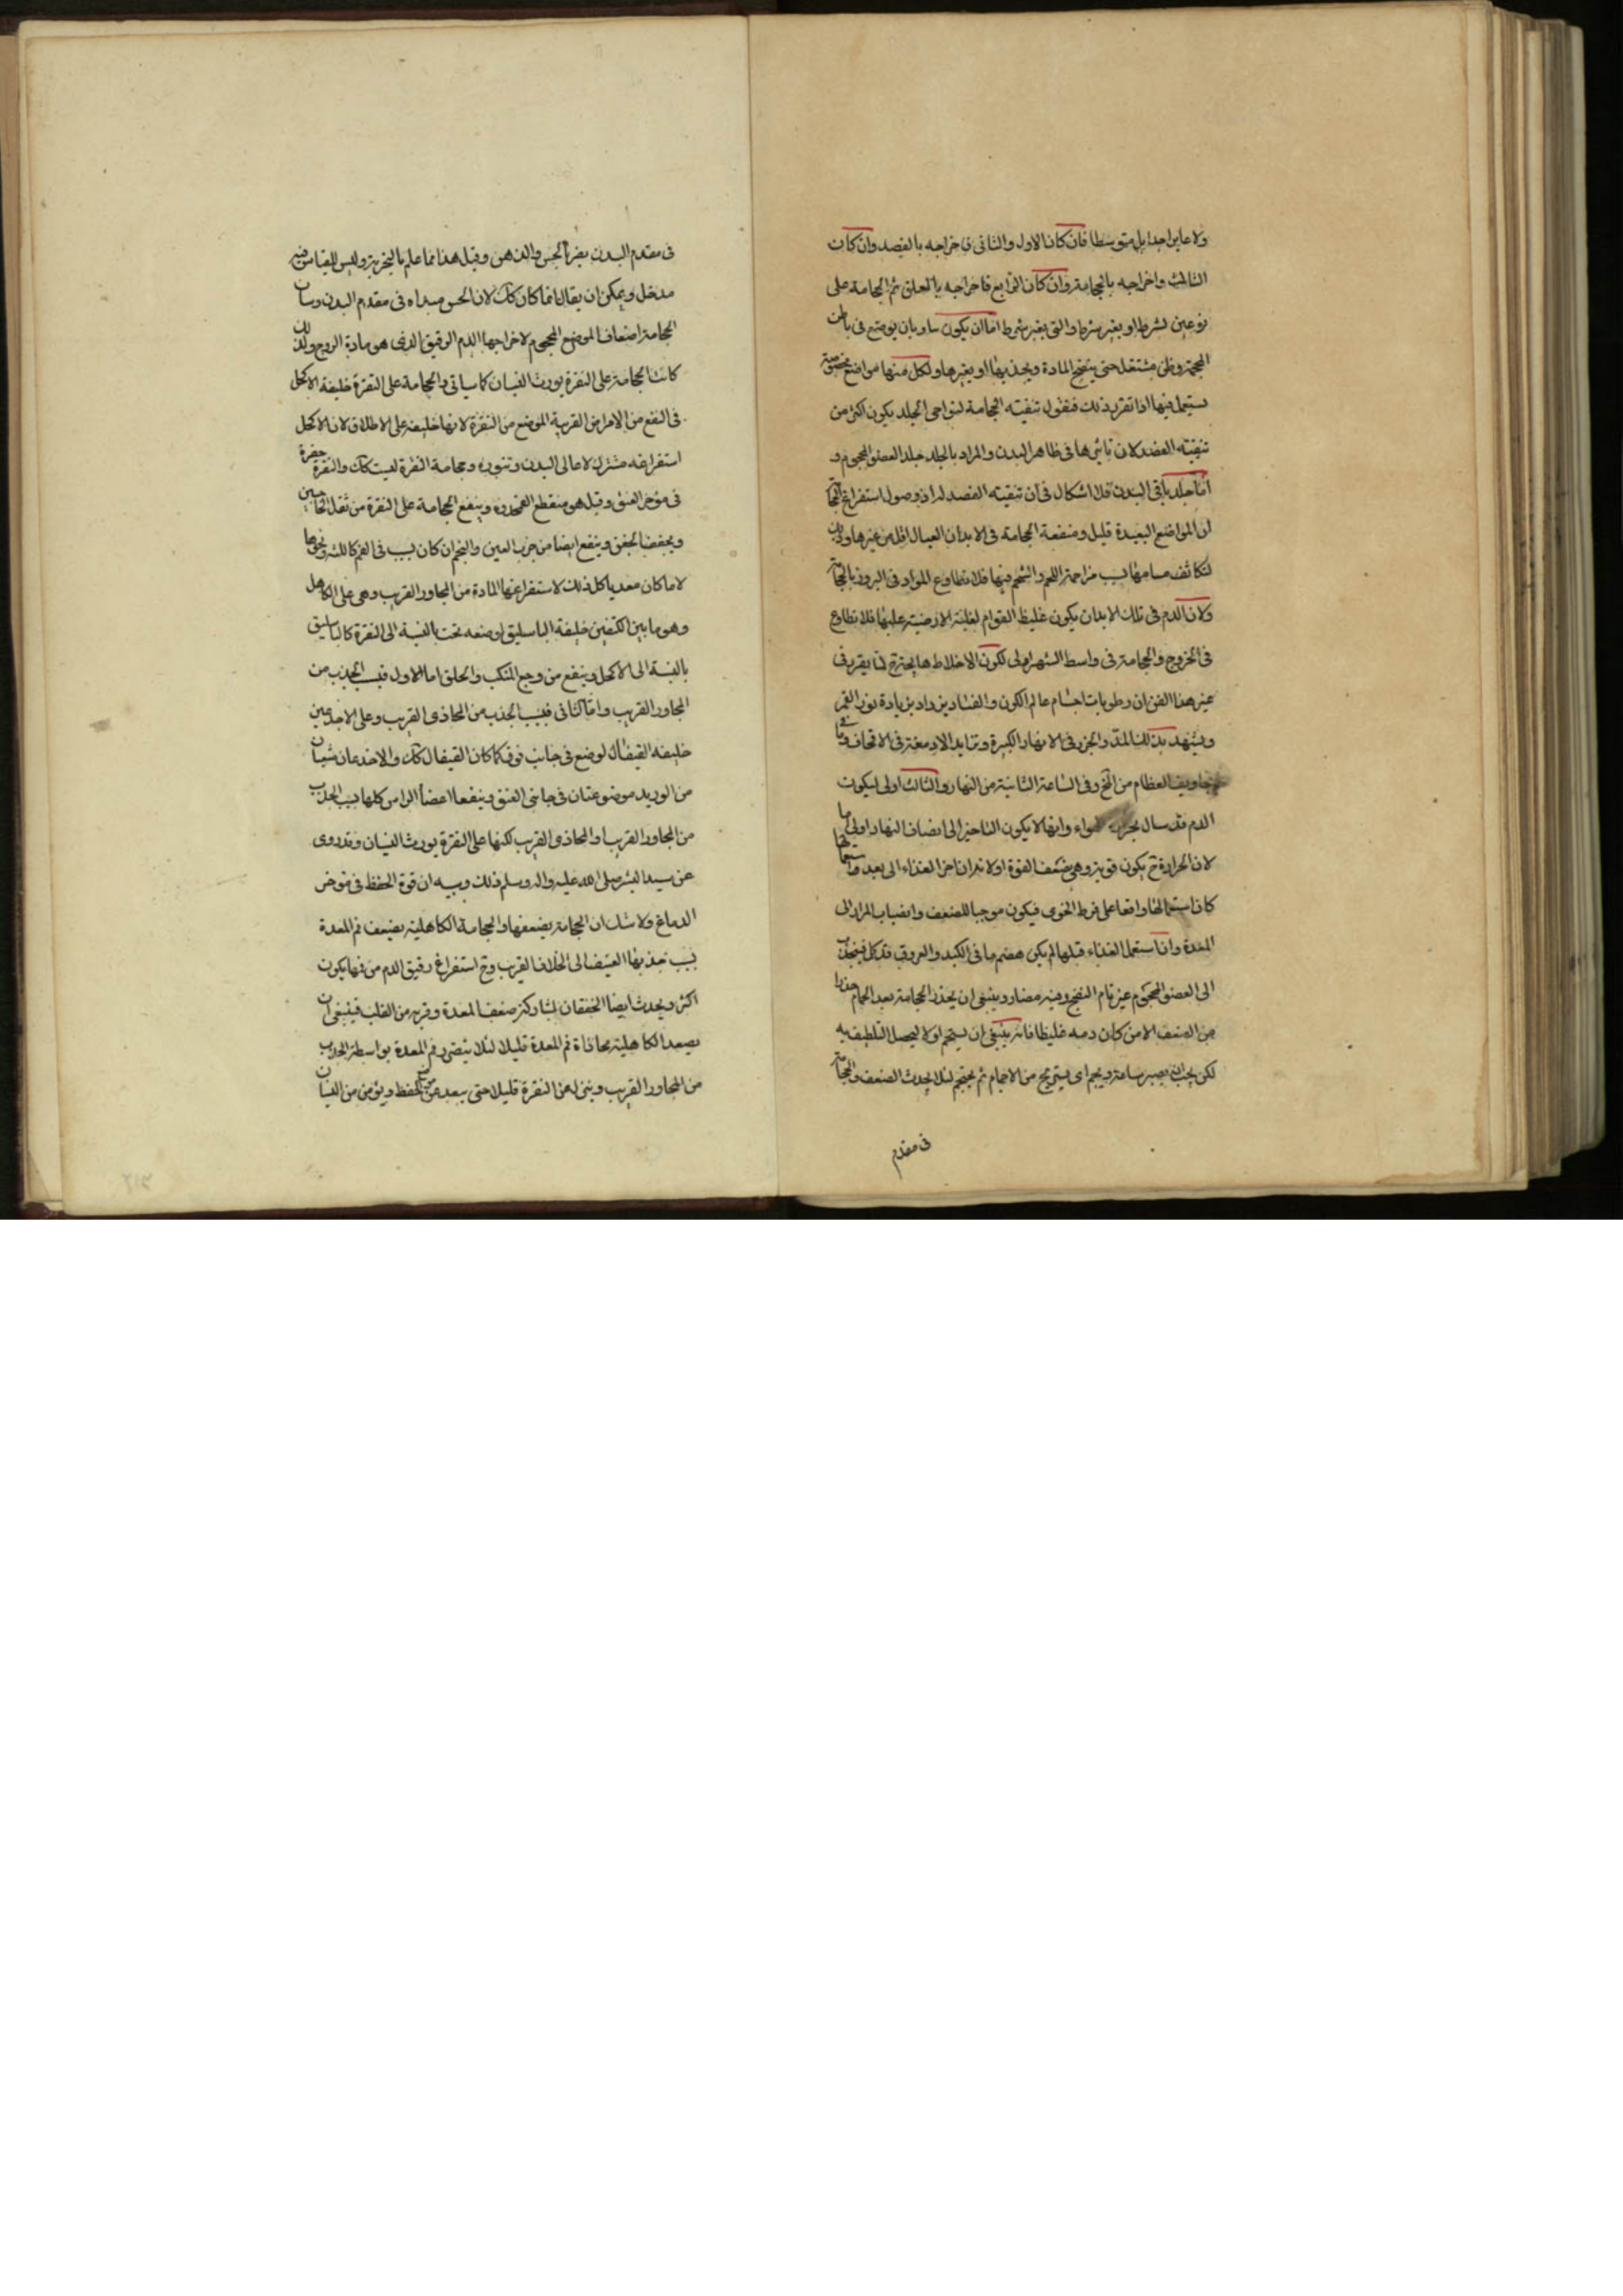 ولا غايرا جدا بل متوسطا فان كان الاول والثانى فاخراجه بالفصد وان كان
الثالث واخراجه بالحجامة وان كان الرابع فاخراجه بالعلق ثم الحجامة على
نوعين بشرط او بغير شرط والتى بغير شرط اما ان يكون بنار بان يوضع فى باطن
المحجمة قطن مشتعل حتى ينفتح المادة ويجذبها او بغيرها ولكل منها مواضع مخصوصة
يستعمل فيها اذا تقرر ذلك فنقول تنقيته الحجامة لنواحى الجلد يكون اكثر من
تنقيته الفصد لان تاثيرها فى ظاهر البدن والمراد بالجلد جلد العضو المحجوم و
اما جلد باقى البدن فلا اشكال فى ان تنقيته الفصد له اذ وصول استفراغ الحجامة
الى المواضع البعيدة قليل ومنفعة الحجامة فى الابدان العبال اقل من غيرها وذلك
لتكاثف مسامها بسبب مزاحمة اللحم والشحم فيها فلا تطاوع المواد فى البروز بالحجامة
ولان الدم فى تلك الابدان يكون غليظ القوام لغلبة الارضية عليها فلا تطاوع
فى الخروج والحجامة فى واسط الشهر اولى لكون الاخلاط هايجة ح لما يقرر فى
غير هذا الفن ان رطوبات اجسام عالم الكون والفساد يزداد بزيادة نور القمر
ويشهد بذلك المد والجزر فى الانهار الكبيرة وتزايد الادمغة فى الاقحاف وما فى
تجاويف العظام من المخ وفى الساعة الثانية من النهار والثالث اولى ليكون
الدم قد سال بحرارة الهواء وانها لا يكون التاخير الى انصاف النهار اولى
لان الحرارة ح يكون قوية وهى يضعف القوة اولا ثم ان اخر الغذاء الى بعد استعمالها
كان استعمالها واقعا على فرط الخوى فيكون موجبا للضعف وانصباب المرار الى
المعدة وان استعمل الغذاء قبلها لم يكن هضم ما فى الكبد والعروق قد كمل فينجذب
الى العضو المحجوم غير تام النضج وفيه مضار وينبغى ان يحذر الحجامة بعد الحمام حذرا
من الضعف الا من كان دمه غليظا فانه ينبغى ان يستحم اولا ليحصل التلطيف به
لكن يجب ان يصبر ساعة ويجم اى يستريح من الاجمام ثم يحتجم لئلا يحدث الضعف والحجامة
فى مقدم
فى مقدم البدن يضر بالحس والذهن وقيل هذا مما علم بالتجربة وليس للقياس فيه
مدخل ويمكن ان يقال انما كان كك لان الحس مبداه فى مقدم البدن وشان
الحجامة اضعاف الموضع المحجوم لاخراجها الدم الرقيق الذى هو مادة الروح ولذلك
كانت الحجامة على النقرة يورث النسيان كما سياتى والحجامة على النقرة خليفة الاكحل
فى النفع من الامراض القريبة الموضع من النقرة لا انها خليفته على الاطلاق لان الاكحل
استفراغه مشترك لاعالى البدن وتنوره وحجامة النقرة ليست كك والنقرة حفرة
فى مؤخر العنق وقيل هو منقطع القمحدوة وينفع الحجامة على النقرة من ثقل الحاجبين
ويجفف الجفن وينفع ايضا من جرب العين والبخر ان كان بسبب فى الفم كاللثة ونحوها
لا ما كان معديا كل ذلك لاستفراغها المادة من المجاور القريب وهى على الكاهل
وهو ما بين الكتفين خليفة الباسليق اوضعه تحت بالنسبة الى النقرة كالباسليق
بالنسبة الى الاكحل وينفع من وجع المنكب والحلق اما الاول فبسبب الجذب من
المجاور القريب واما الثانى فبسبب الجذب من المحاذى القريب وعلى الاخدعين
خليفة القيفال لوضع فى جانب فوق كما كان القيفال كك والاخدعان شعبتان
من الوريد موضوعتان فى جانبى العنق وينفع اعضاء الراس كلها بسبب الجذب
من المجاور القريب او المحاذى القريب لكنها على النقرة يورث النسيان وقد روى
عن سيد البشر صلى الله عليه واله وسلم ذلك وسببه ان قوة الحفظ فى مؤخر
الدماغ ولا شك ان الحجامة يضعفها والحجامة الكاهلية يضعف فم المعدة
بسبب جذبها العنيف الى الخلاف القريب وح استفراغ رقيق الدم من فمها يكون
اكثر ويحدث ايضا الخفقان لمشاركة ضعف المعدة وقربه من القلب فينبغى ان
يصعد الكاهلية محاذاة فم المعدة قليلا لئلا يتضرر فم المعدة بواسطة الجذب
من المجاور القريب وينزل هى النقرة قليلا حتى يبعد عن الحفظ ويؤمن من النسيان